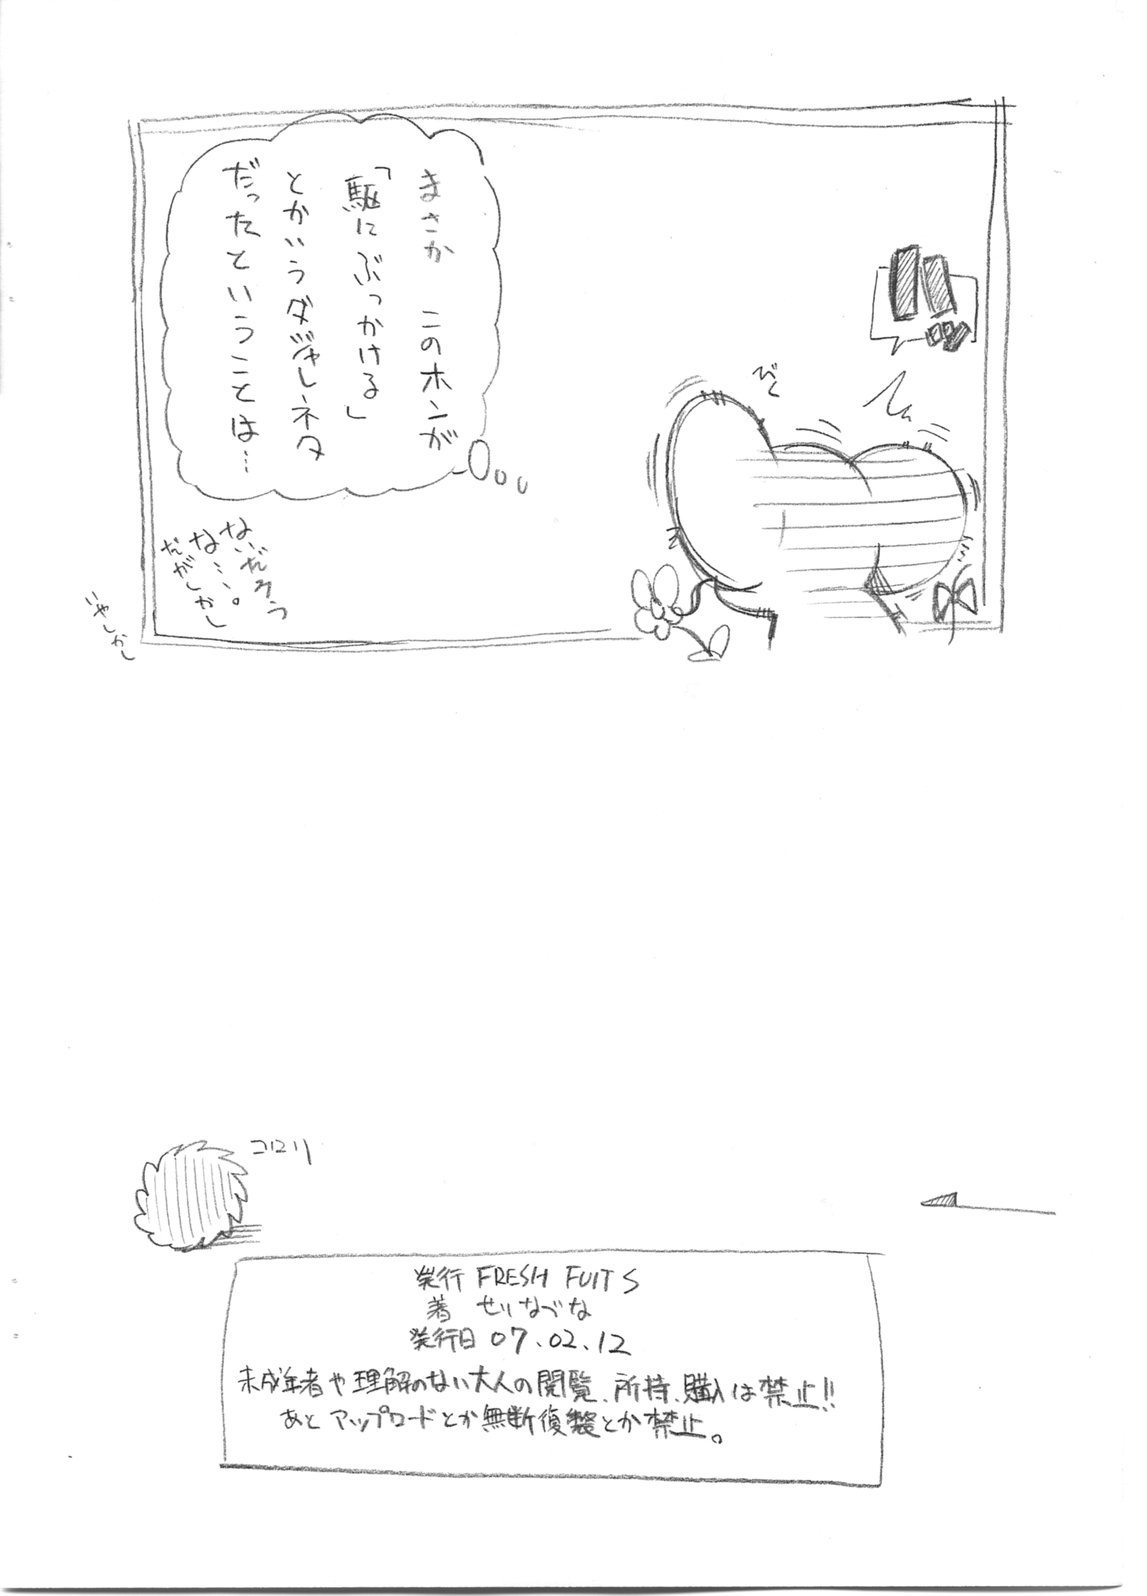 まさか このホンが
「駆にぶっかける」
とかいうダジャレネタ
だったということは…
びく
ないだろう
な…。
だがしかし
いやしかし
コロリ
発行 FRESH FUITS
著 せいなづな
発行日 07.02.12
未成年者や理解のない大人の閲覧、所持、購入は禁止!!
あと アップロードとか無断複製とか禁止。